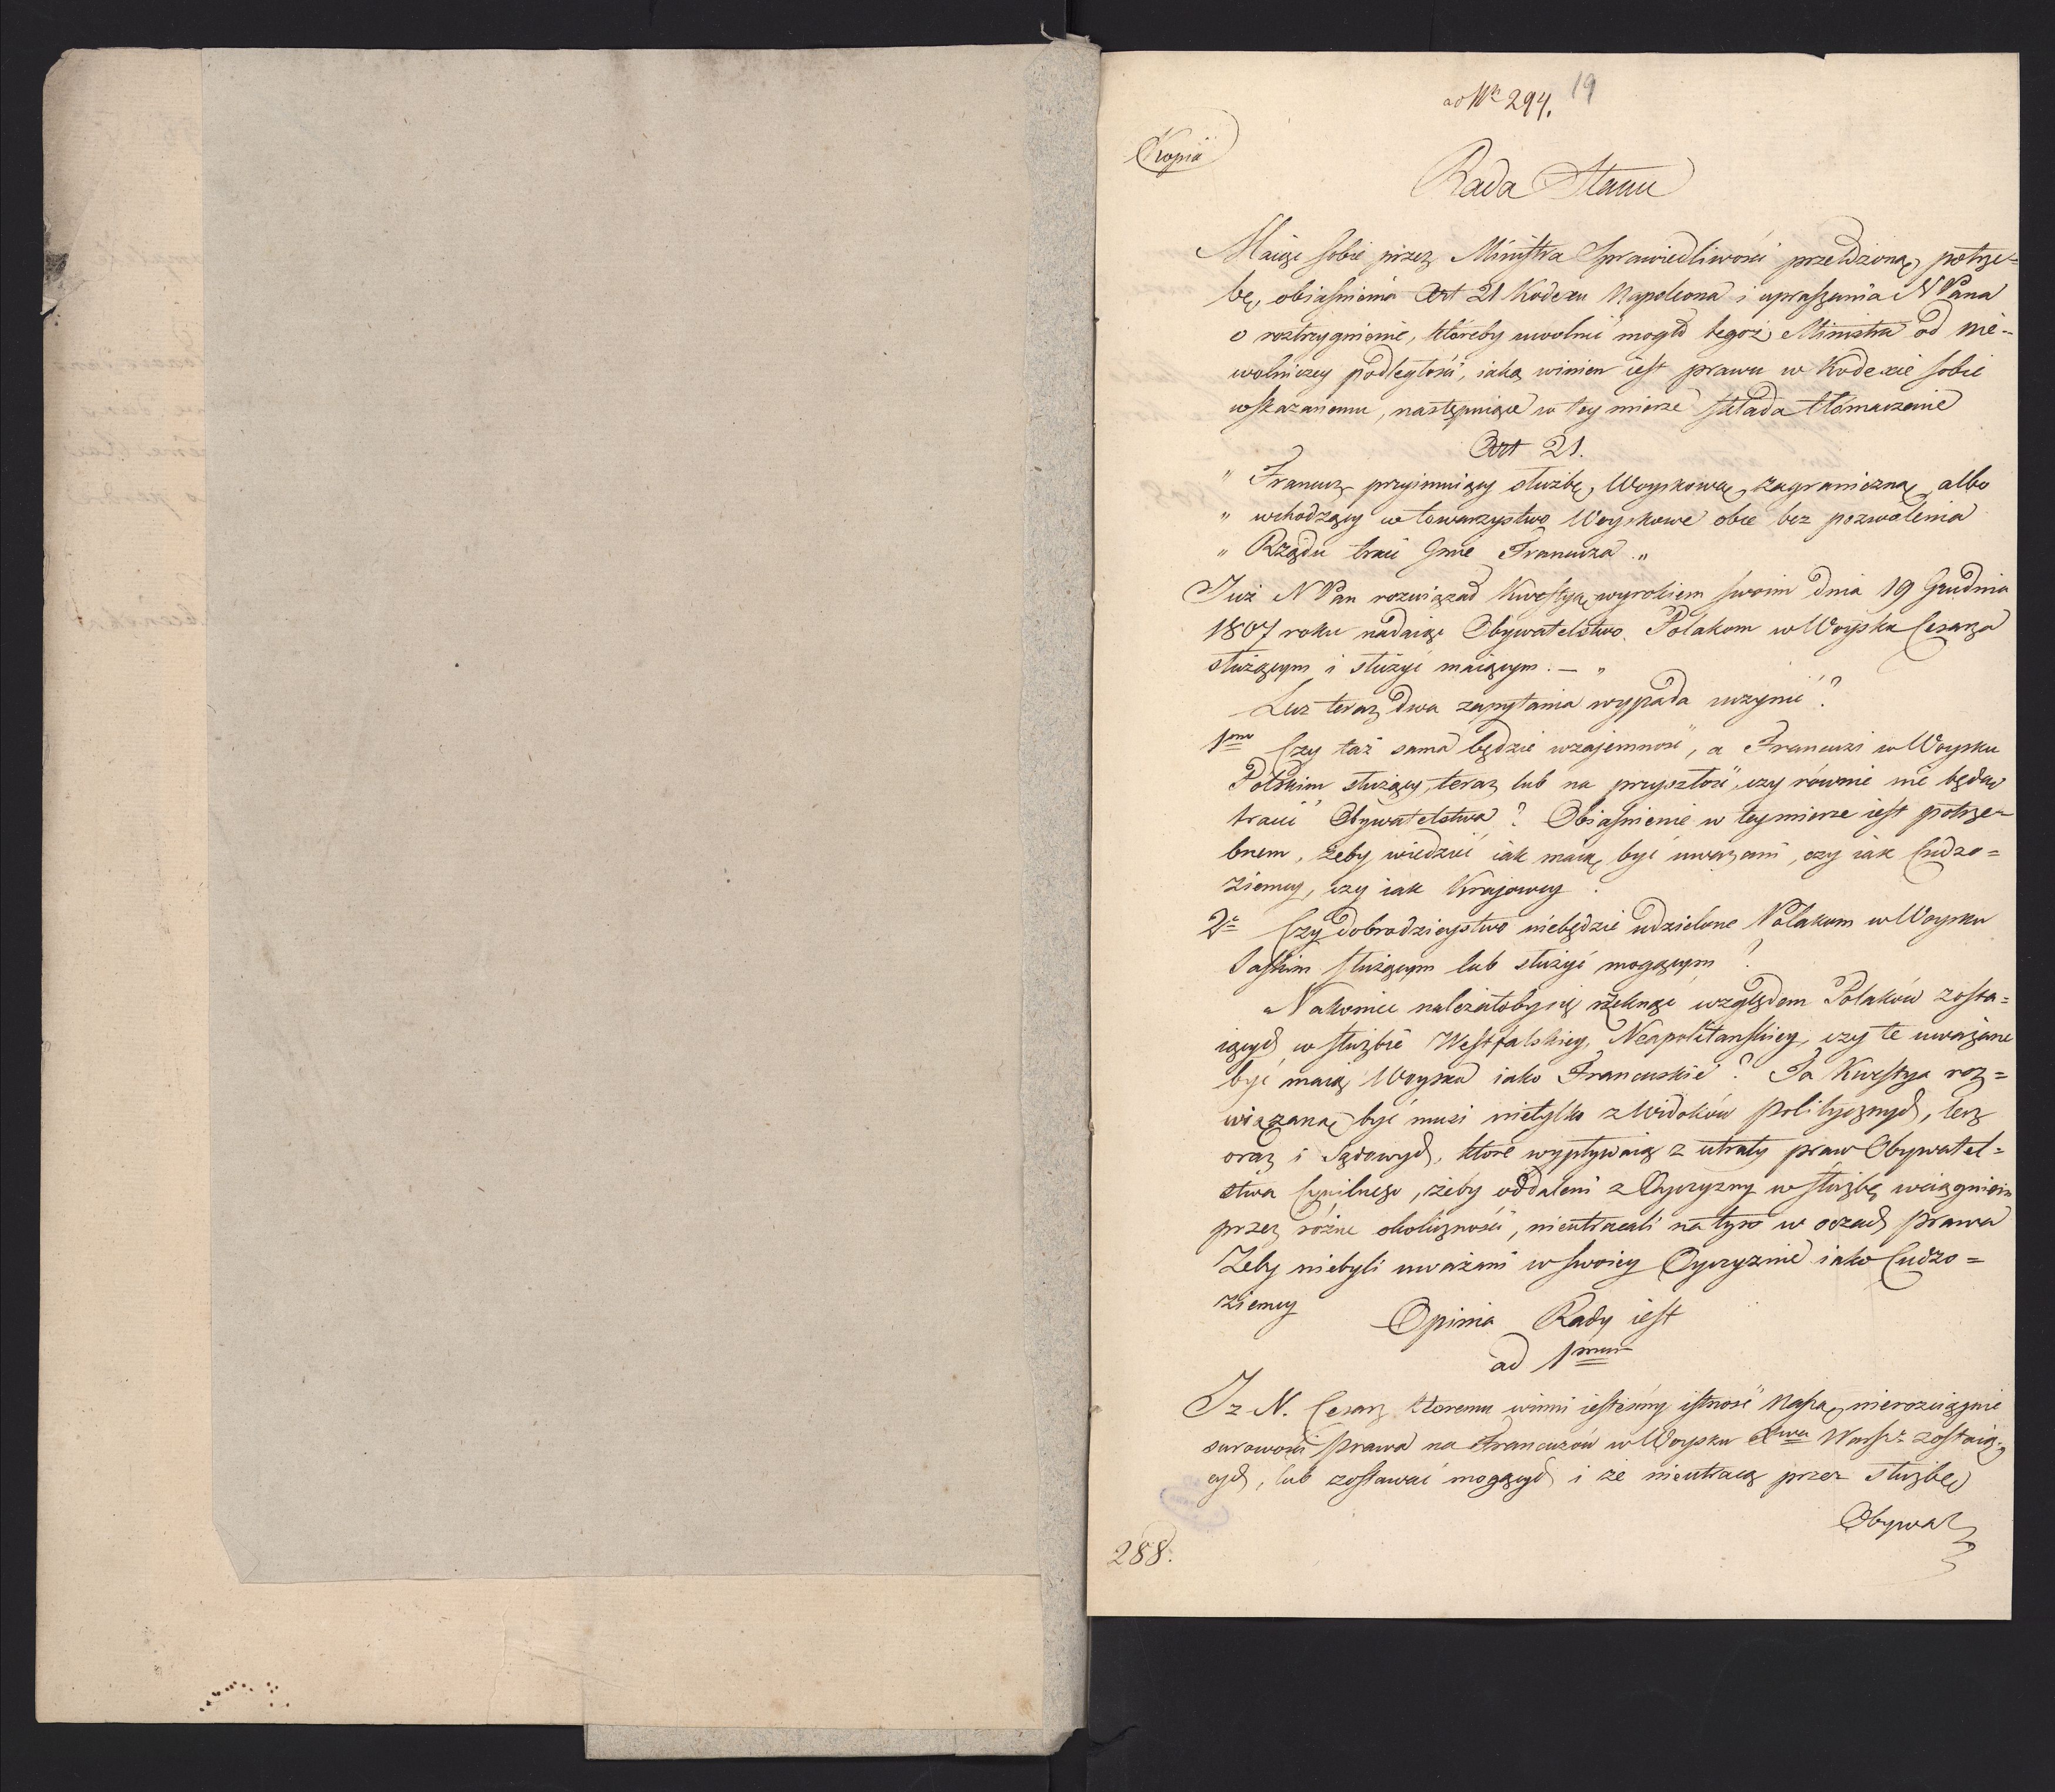 ad Nr 294. 19
Kopia
Rada Stanu
Maiąc sobie przez Ministra Sprawiedliwości przełożoną potrze=
bę, obiaśnienia Art 21 Kodexu Napoleona i upraszania N Pana
o roztrzygnienie, któreby uwolnić mogło tegoż Ministra od nie-
wolniczey podległości, iaką winien iest prawu w Kodexie sobie
wskazanemu, następuiące w tey mierze składa tłómaczenie
Art 21.
" Francuz przyimuiący służbę Woyskową zagraniczną albo
" wchodzący w towarzystwo Woyskowe obce bez pozwolenia
" Rządu traci Imie Francuza „
Już N Pan rozwiązał Kwestyą wyrokiem swoim dnia 19 Grudnia
1807 roku nadaiąc Obywatelstwo Polakom w Woysku Cesarza
służącym i służyć maiącym. — "
Lecz teraz dwa zapytania wypada uczynić?
1mo Czy taż sama będzie wzajemność, a Francuzi w Woysku
Polskim służący teraz lub na przyszłość, czy równie nie będą
tracić Obywatelstwa? Obiaśnienie w tey mierze iest potrze=
bnem, żeby wiedzieć iak maią być uważani, czy iak Cudzo=
ziemcy, czy iak Krajowcy.
2e Czy dobrodzieystwo niebędzie udzielone Polakom w Woysku
Saskim służącym lub służyć mogącym?
Nakoniec należałoby się rzeknąć względem Polaków zosta=
iących w służbie Westfalskiey, Neapolitańskiey, czy te uważane
być maią Woyska iako Francuskie? Ta Kwestya roz=
wiązaną być musi nietylko z widoków politycznych, lecz
oraz i Sądowych, które wypływaią z utraty praw Obywatel=
stwa Cywilnego, żeby oddaleni z Oyczyzny w służbę wciągnieni
przez różne okoliczności, nieutracali na tym w oczach prawa
Żeby niebyli uważani w swoiey Oyczyznie iako Cudzo=
ziemcy
Opinia Rady iest
ad 1mum
Iż N. Cesarz któremu winni iesteśmy istność naszą, nierozciągnie
surowości prawa na Francuzów w Woysku Xwa Warsz. zostaią-
cych, lub zostawać mogących i że nieutracą przez służbę
Obywat
288.